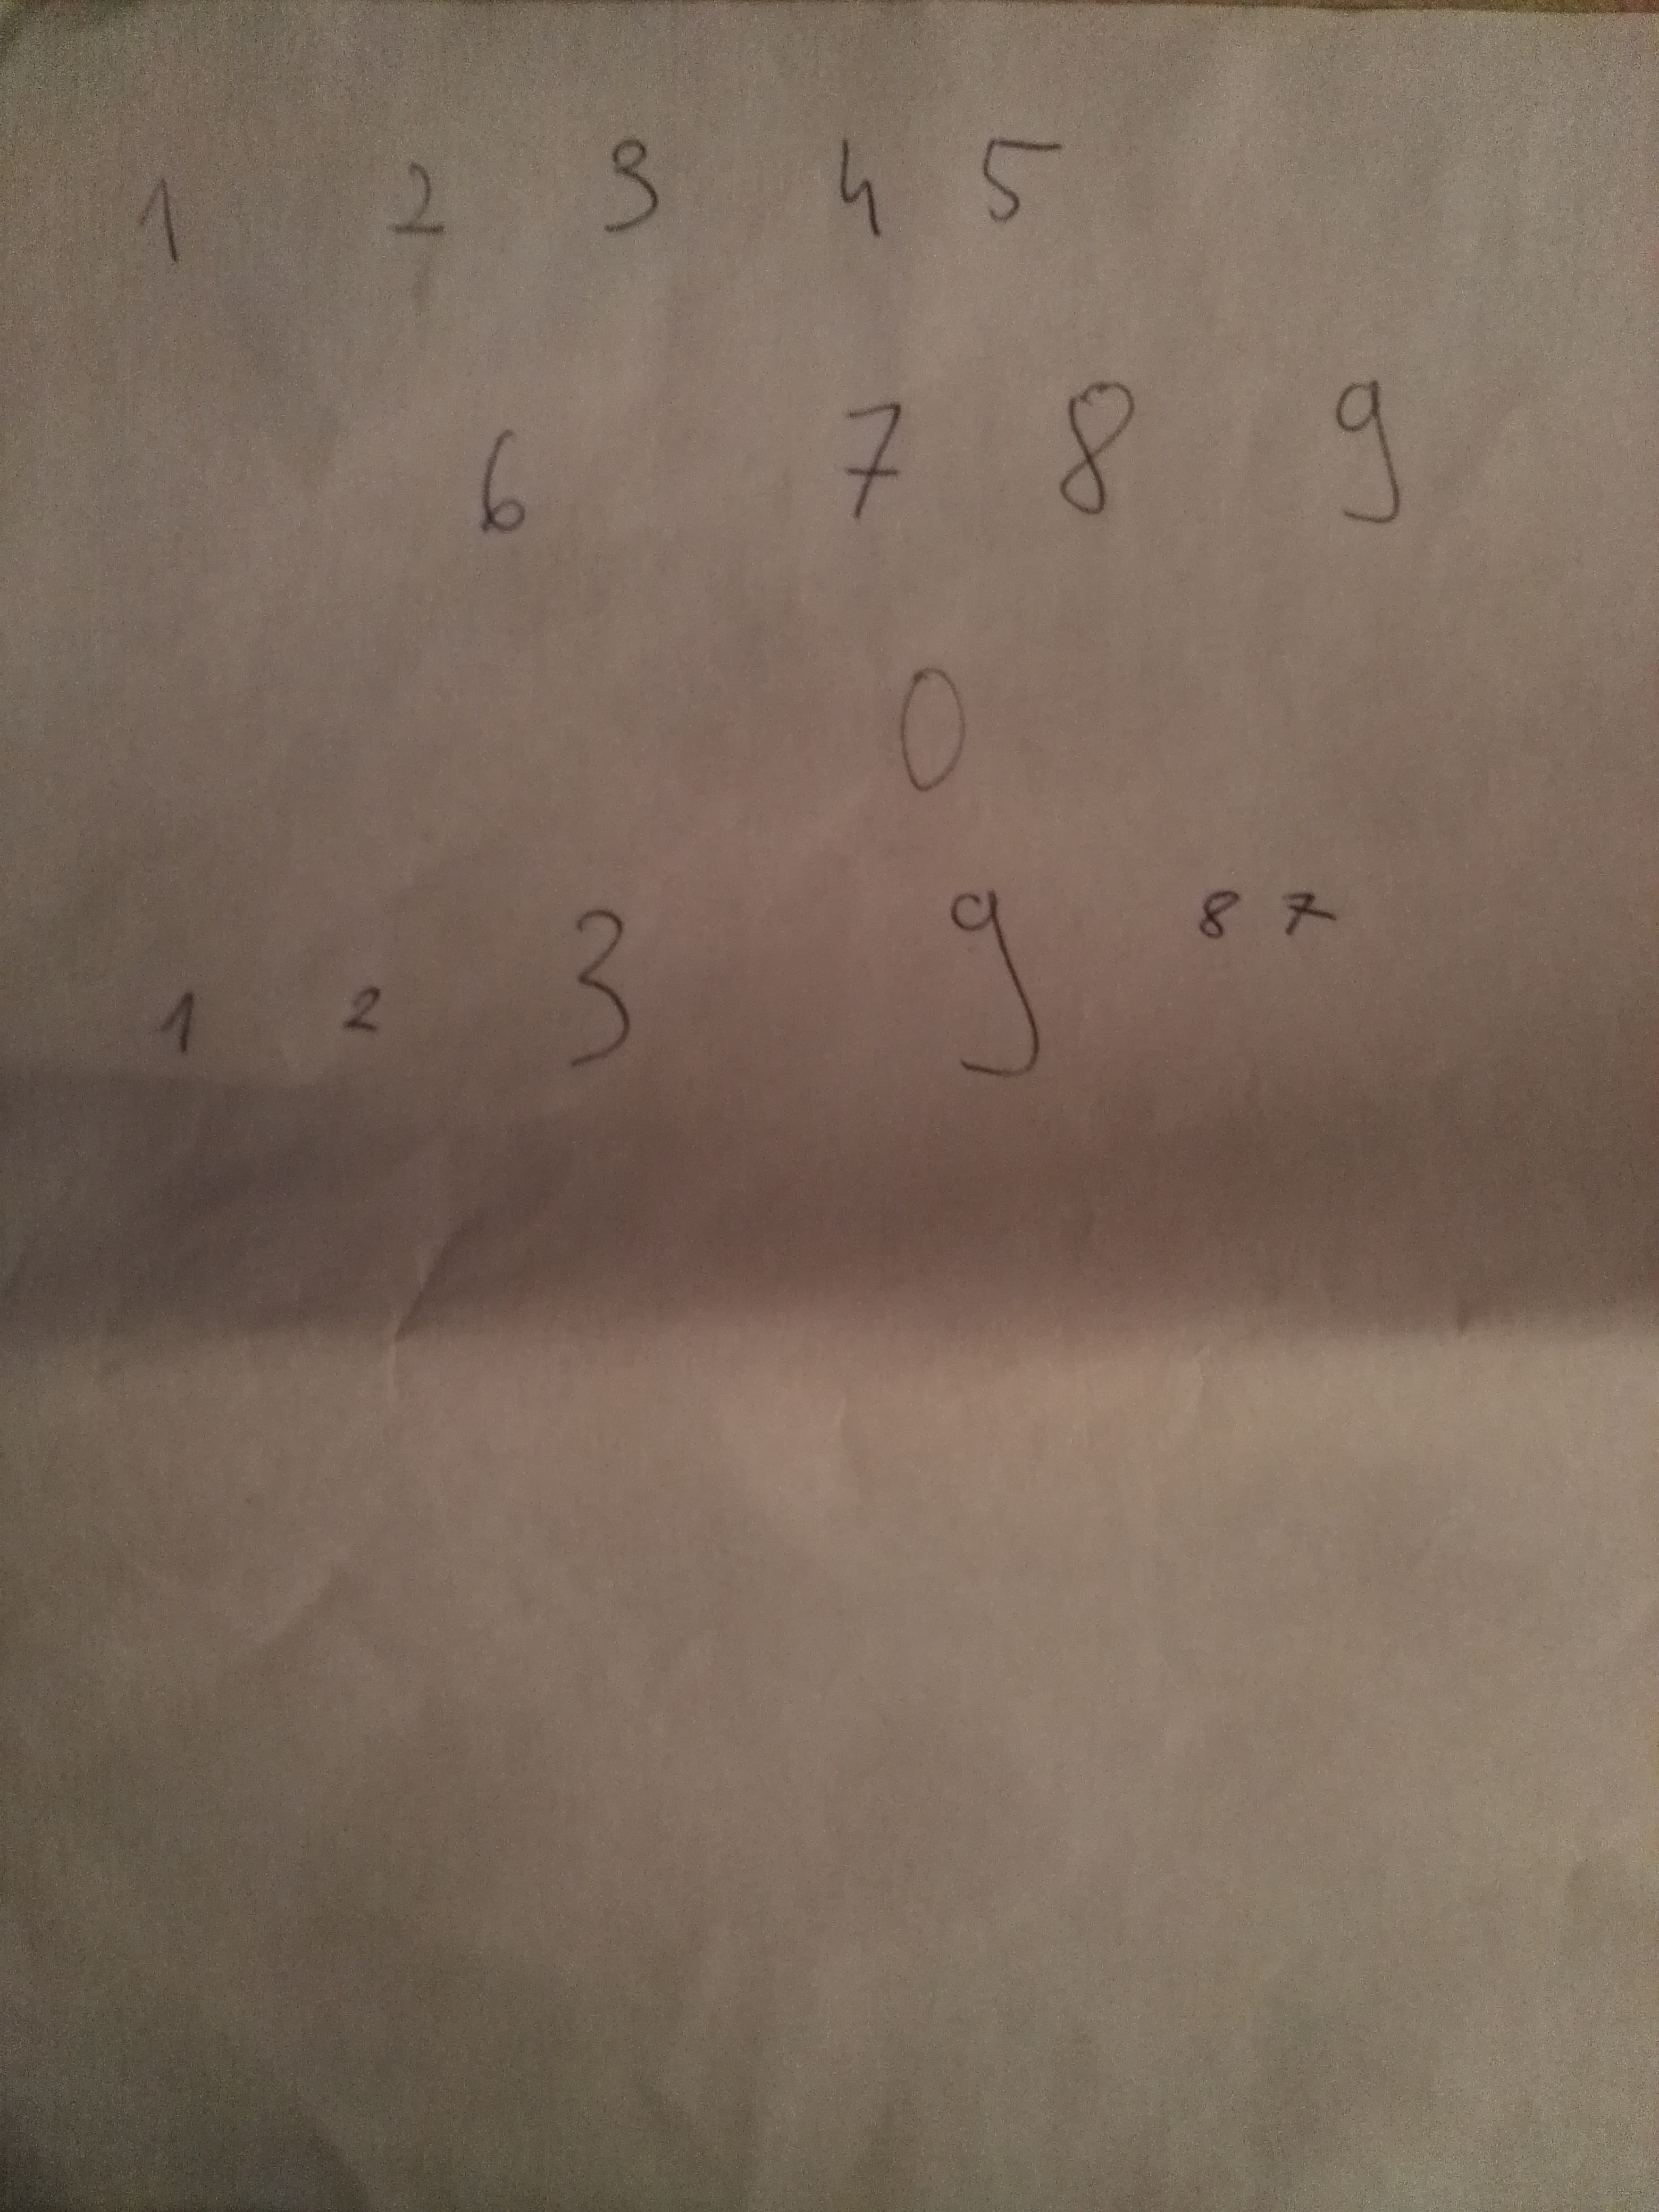 1 2 3 4 5
6 7 8 9
0
1 2 3 9 8 7